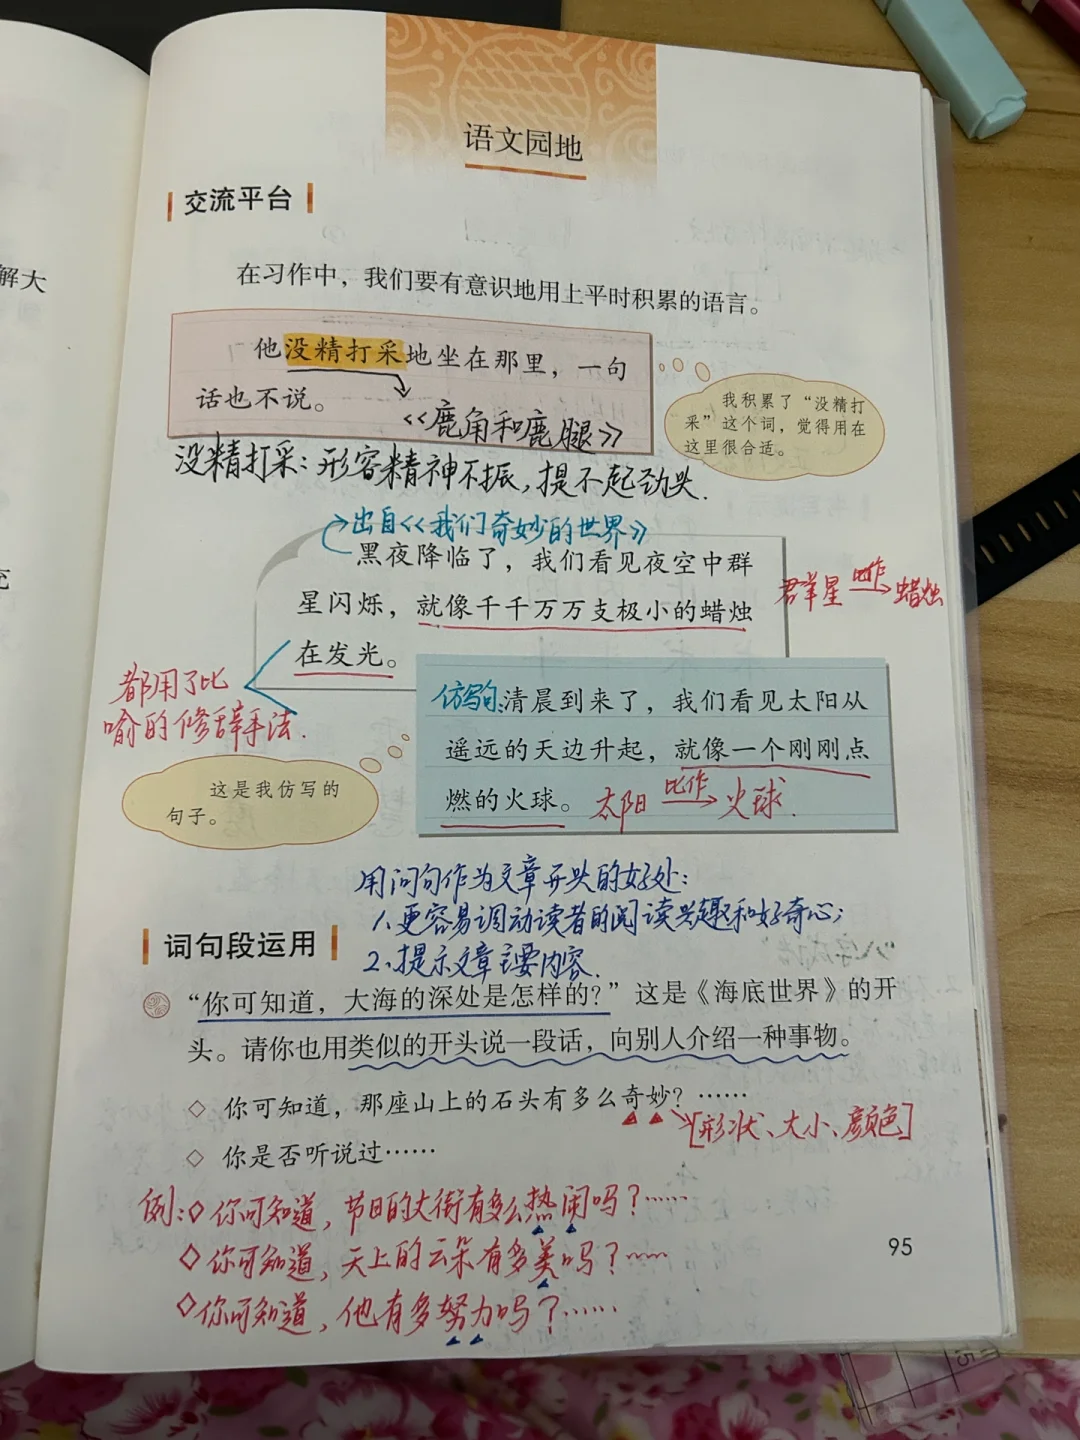 语文园地
交流平台
解大
在习作中，我们要有意识地用上平时积累的语言。
他没精打采地坐在那里，一句
话也不说。
《鹿角和鹿腿》
我积累了“没精打
采”这个词，觉得用在
这里很合适。
没精打采：形容精神不振，提不起劲头.
出自《我们奇妙的世界》
黑夜降临了，我们看见夜空中群
星闪烁，就像千千万万支极小的蜡烛
在发光。
群星 比作 蜡烛
都用了比
喻的修辞手法.
仿写句：清晨到来了，我们看见太阳从
遥远的天边升起，就像一个刚刚点
燃的火球。 太阳 比作 火球.
这是我仿写的
句子。
用问句作为文章开头的好处：
1.更容易调动读者的阅读兴趣和好奇心；
2.提示文章主要内容.
词句段运用
“你可知道，大海的深处是怎样的？”这是《海底世界》的开
头。请你也用类似的开头说一段话，向别人介绍一种事物。
◇ 你可知道，那座山上的石头有多么奇妙？……
[形状、大小、颜色]
◇ 你是否听说过……
例：◇你可知道，节日的大街有多么热闹吗？……
◇你可知道，天上的云朵有多美吗？……
◇你可知道，他有多努力吗？……
95